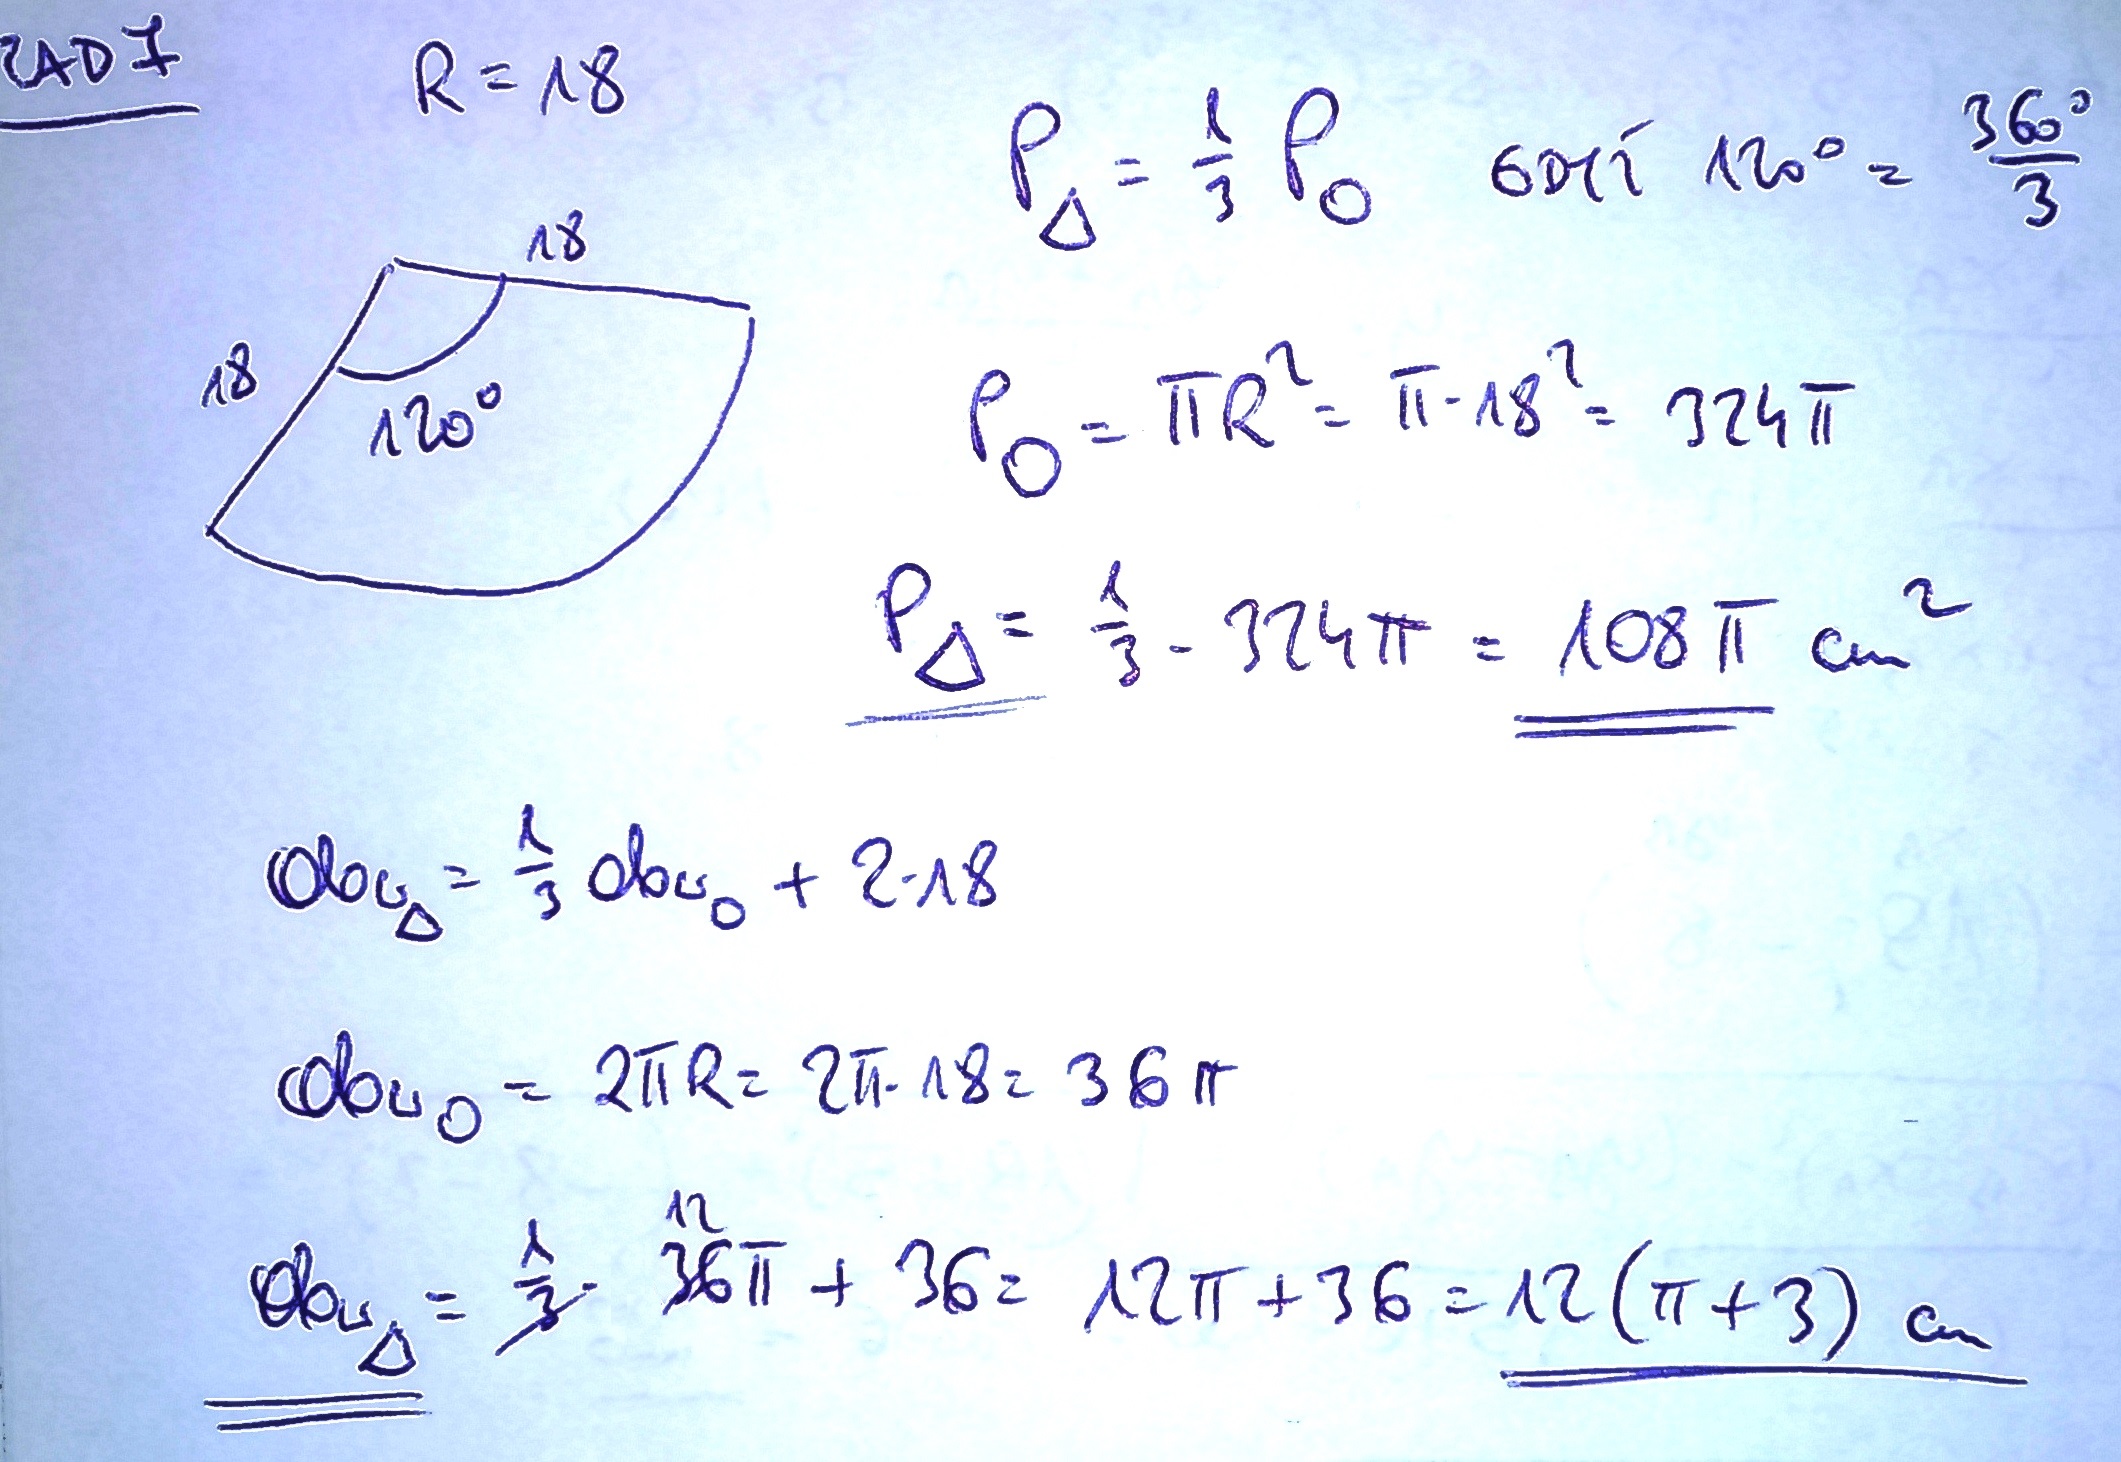 ZAD 7
R = 18
18
18
120°
P△ = 1/3 P○ 120° = 360°/3
P○ = πR² = π·18² = 324π
P△ = 1/3 · 324π = 108π cm²
obw△ = 1/3 obw○ + 2·18
obw○ = 2πR = 2π·18 = 36π
12
obw△ = 1/3 · 36π + 36 = 12π + 36 = 12(π + 3) cm